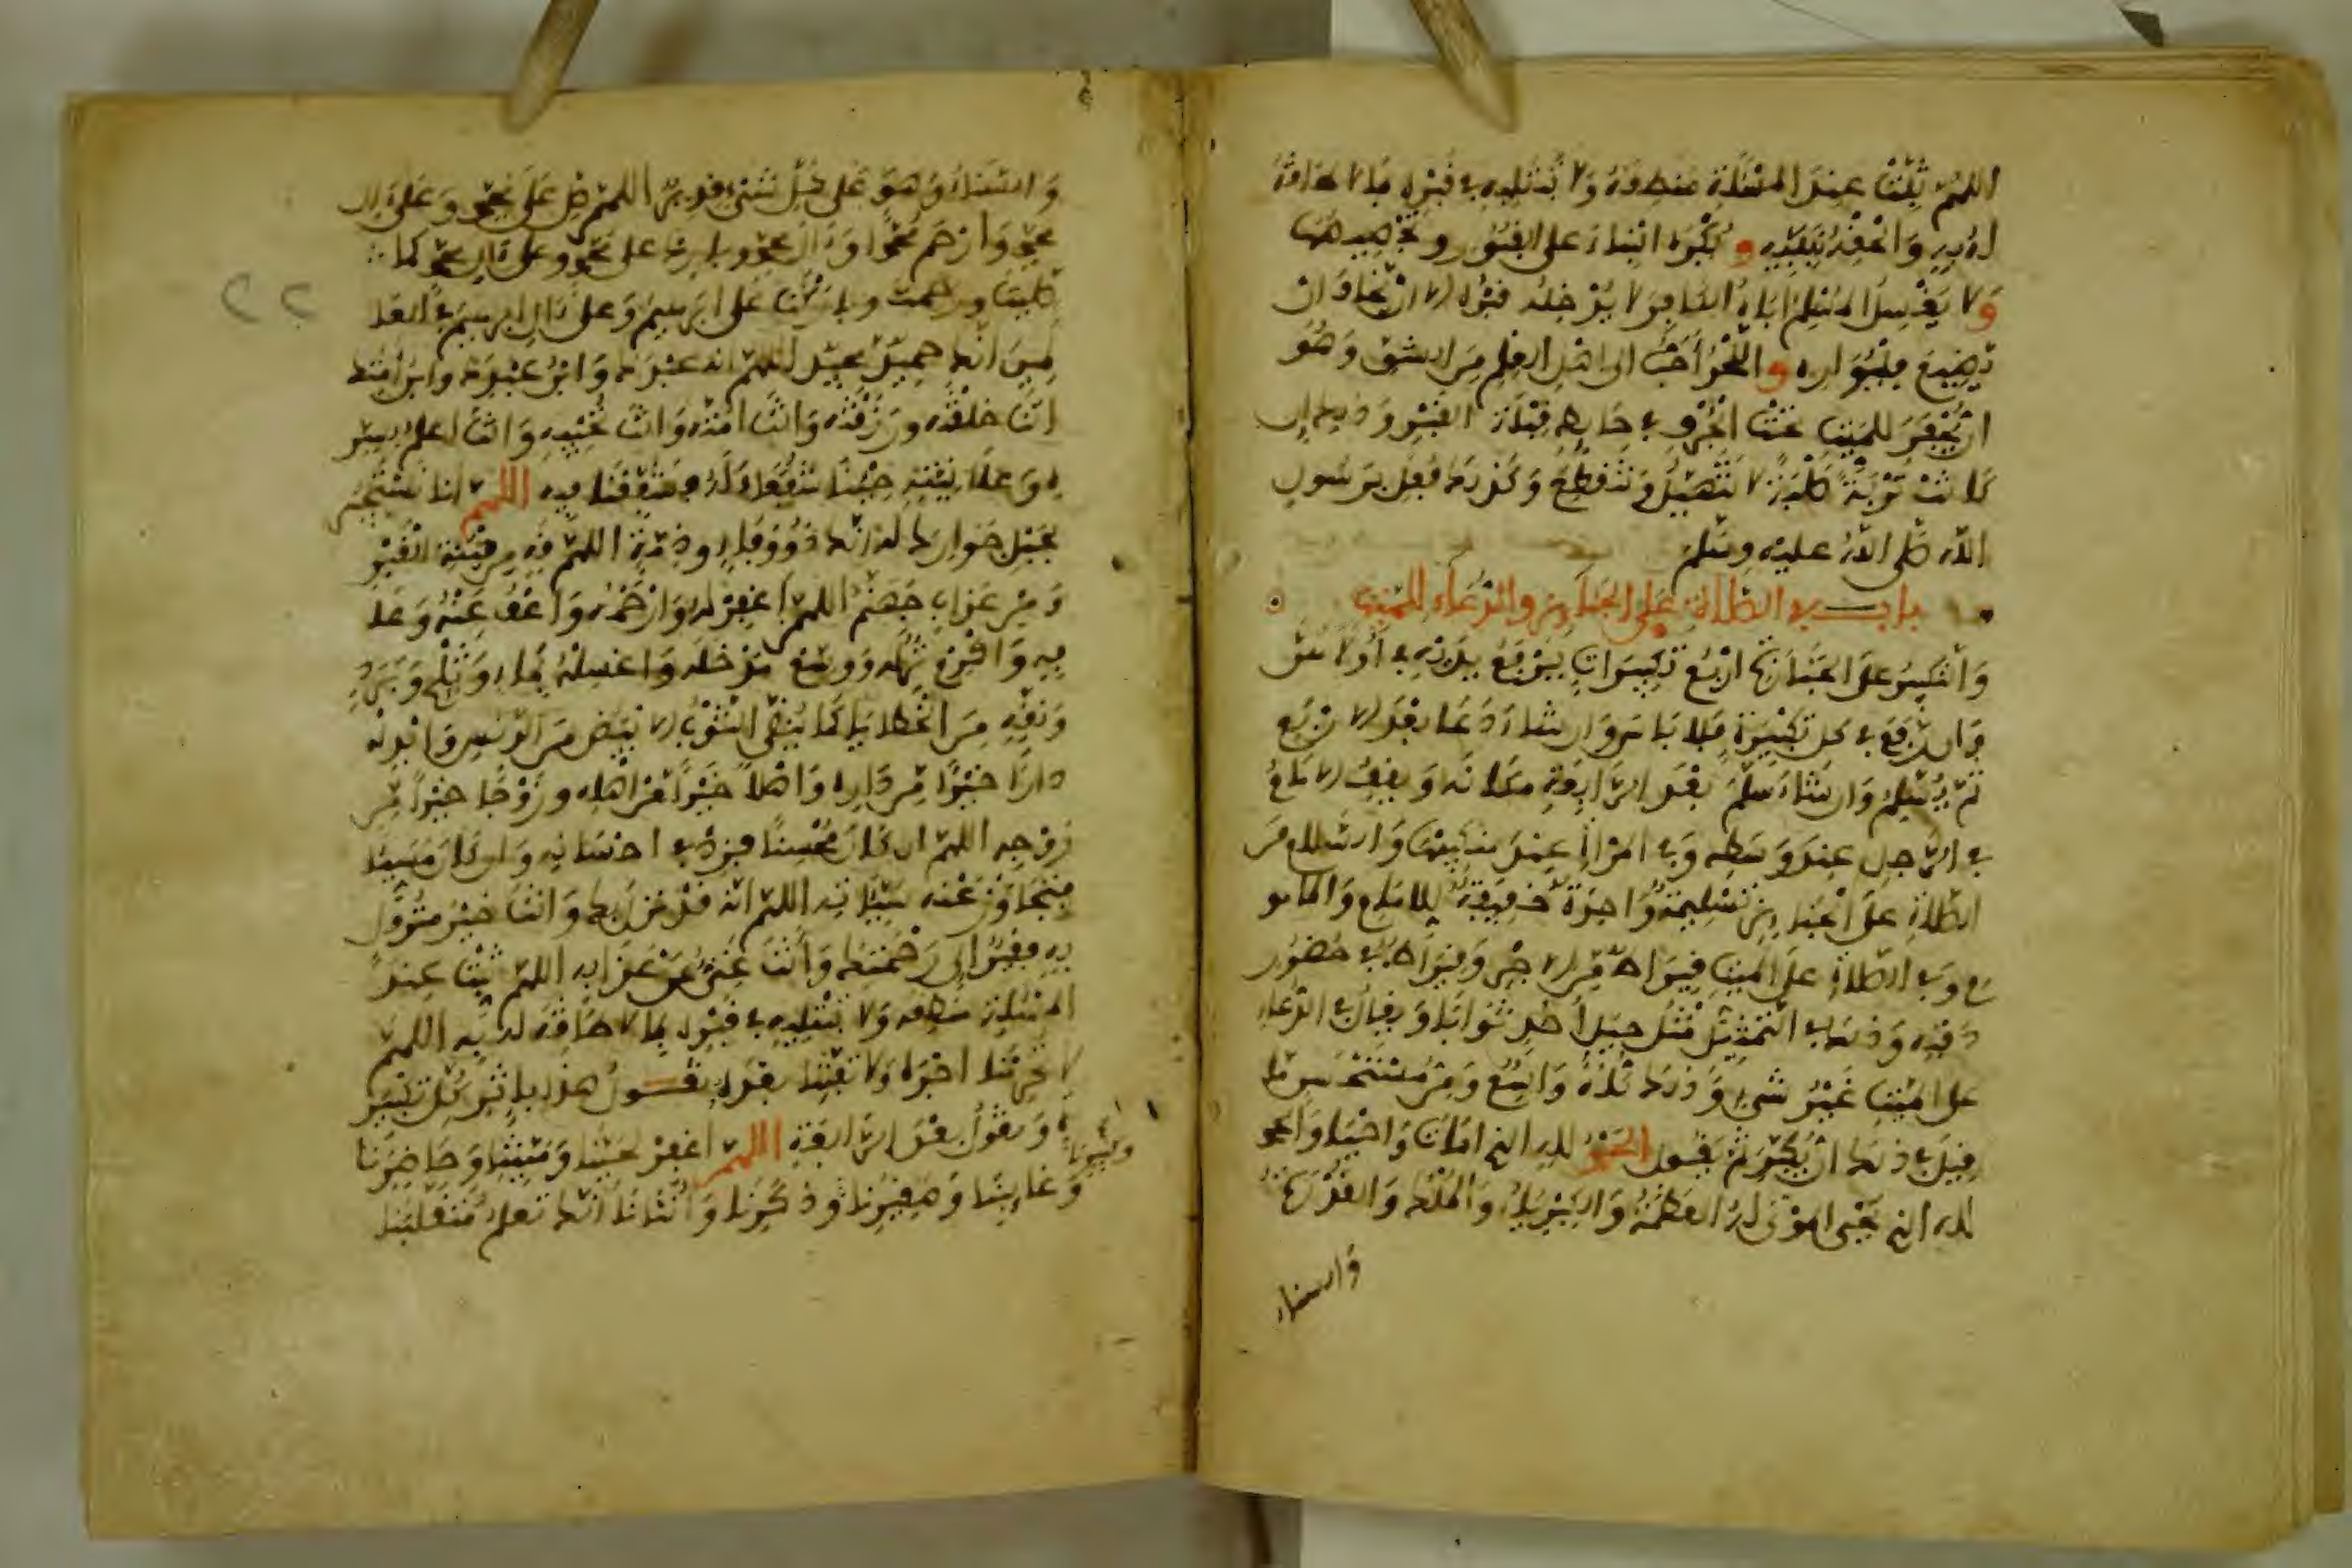 اللهم ثبت عند المسئلة منطقه ولا تبتليه في قبره بما لا طاقة
له به والحقه بنبيه ويكره البناء على القبور وتجصيصها
ولا يغسل المسلم اباه الكافر ولا يدخله قبره الا ان يخاف ان
يضيع فليواره واللحد أحب الى اهل العلم من الشق وهو
ان يحفر للميت تحت الجرف في حايط قبلة القبر وذلك ان
كانت تربة صلبة لا تتهيل ولا تتقطع وكذلك فعل برسول
الله صلى الله عليه وسلم
باب في الصلاة على الجنايز والدعاء للميت
والتكبير على الجنازة اربع تكبيرات يرفع يديه في أولاهن
وان رفع في كل تكبيرة فلا باس وان شاء دعا بعد الاربع
ثم يسلم وان شاء سلم بعد الرابعة مكانه ويقف الامام
في الرجل عند وسطه وفي المراة عند منكبيها والسلام من
الصلاة على الجنايز تسليمة واحدة خفيفة للامام والمامو
م وفي الصلاة على الميت قيراط من الاجر وقيراط في حضور
دفنه وذلك في التمثيل مثل جبل أحد ثوابا ويقال في الدعاء
على الميت غير شيء وذلك كله واسع ومن مستحسن ما
قيل في ذلك ان يكبر ثم يقول الحمد لله الذي امات واحيا والحمد
لله الذي يحيي الموتى له العظمة والكبرياء والملك والقدرة
والسناء
والسناء وهو على كل شيء قدير اللهم صل على محمد وعلى ءال
محمد وارحم محمدا وءال محمد وبارك على محمد وعلى ءال محمد كما
صليت ورحمت وباركت على ابرهيم وعلى ءال ابرهيم في العا
لمين انك حميد مجيد اللهم انه عبدك وابن عبدك وابن أمتك
انت خلقته ورزقته وانت امته وانت تحييه وانت اعلم بسر
ه وعلانيته جئناك شفعاء له فشفعنا فيه اللهم انا نستجير
بحبل جوارك له انك ذو وفاء وذمة اللهم قه من فتنة القبر
ومن عذاب جهنم اللهم اغفر له وارحمه واعف عنه وعا
فه واكرم نزله ووسع مدخله واغسله بماء وثلج وبرد
ونقه من الخطايا كما ينقى الثوب الابيض من الدنس وابدله
دارا خيرا من داره واهلا خيرا من اهله وزوجا خيرا من
زوجه اللهم ان كان محسنا فزد في احسانه وان كان مسيئا
فتجاوز عنه سيئاته اللهم انه قد نزل بك وانت خير منزول
به فقير الى رحمتك وأنت غني عن عذابه اللهم ثبت عند
المسئلة منطقه ولا تبتليه في قبره بما لا طاقة له به اللهم
لا تحرمنا اجره ولا تفتنا بعده يقول هذا باثر كل تكبير
ة ويقول بعد الرابعة اللهم اغفر لحينا وميتنا وحاضرنا
وكبيرنا
وغايبنا وصغيرنا وذكرنا وأنثانا انك تعلم متقلبنا